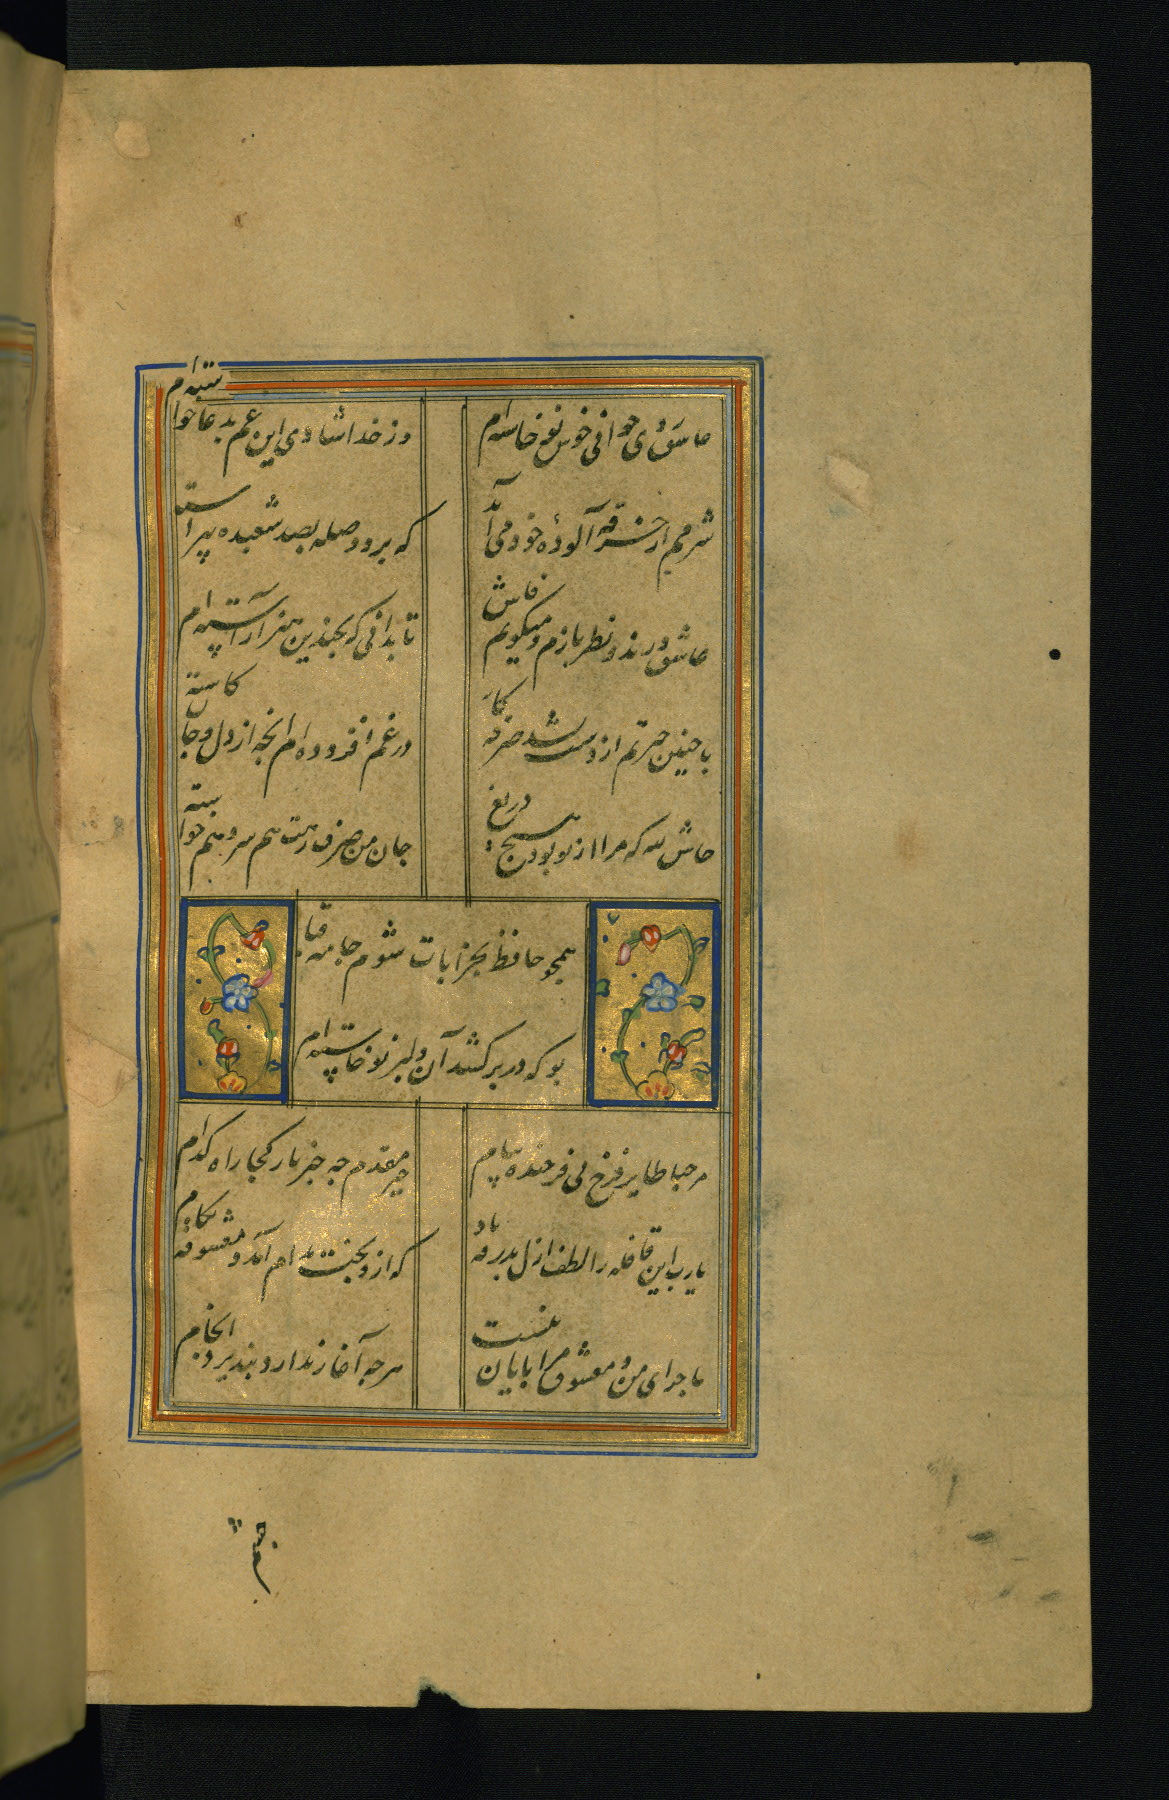 عاشق روی جوانی خوش نوخاسته‌ام
وز خدا شادی این غم بدعا خواسته‌ام
شرمم از خرقه آلوده خود می آید
که برو وصله بصد شعبده پیراسته
عاشق و رند و نظربازم و میگویم فاش
تا بدانی که بچندین هنر آراسته‌ام
با چنین حیرتم از دست بشد صرفه کار
در غم افزوده‌ام انچه از دل و جان کاسته
حاش لله که مرا از تو بود هیچ دریغ
جان من صرف رهت هم سر و هم خواسته
همچو حافظ بخرابات شوم جامه قبا
بو که در بر کشد آن دلبر نوخاسته‌ام
مرحبا طایر فرخ پی فرخنده پیام
خیر مقدم چه خبر یار کجا راه کدام
یارب این قافله را لطف ازل بدرقه باد
که ازو بخت بدام آمد و معشوقه بکام
ماجرای من و معشوق مرا پایان نیست
هرچه آغاز ندارد نپذیرد انجام